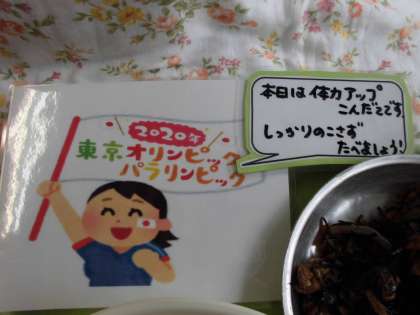 2020年
東京オリンピック
パラリンピック
本日は体力アップ
こんだてです
しっかりのこさず
たべましょう